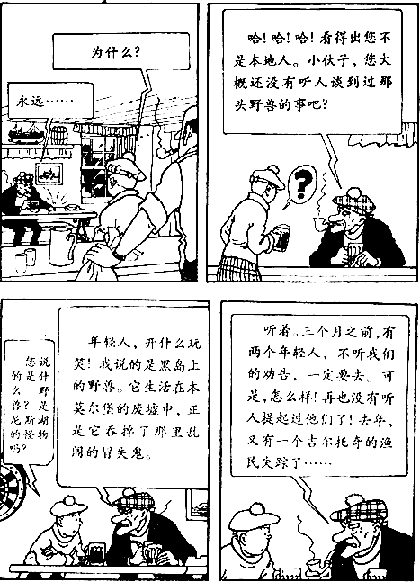 为什么?
永远……
哈!哈!哈!看得出您不
是本地人。小伙子,您大
概还没有听人谈到过那
头野兽的事吧?
?
您说
的是什
么野
兽?是
尼斯湖
的怪物
吗?
年轻人,开什么玩
笑!我说的是黑岛上
的野兽。它生活在本
莫尔堡的废墟中,正
是它吞掉了那里乱
闯的冒失鬼。
听着..三个月之前,有
两个年轻人,不听我们
的劝告,一定要去,可
是,怎么样!再也没有听
人提起过他们了!去年,
又有一个吉尔托奇的渔
民失踪了……